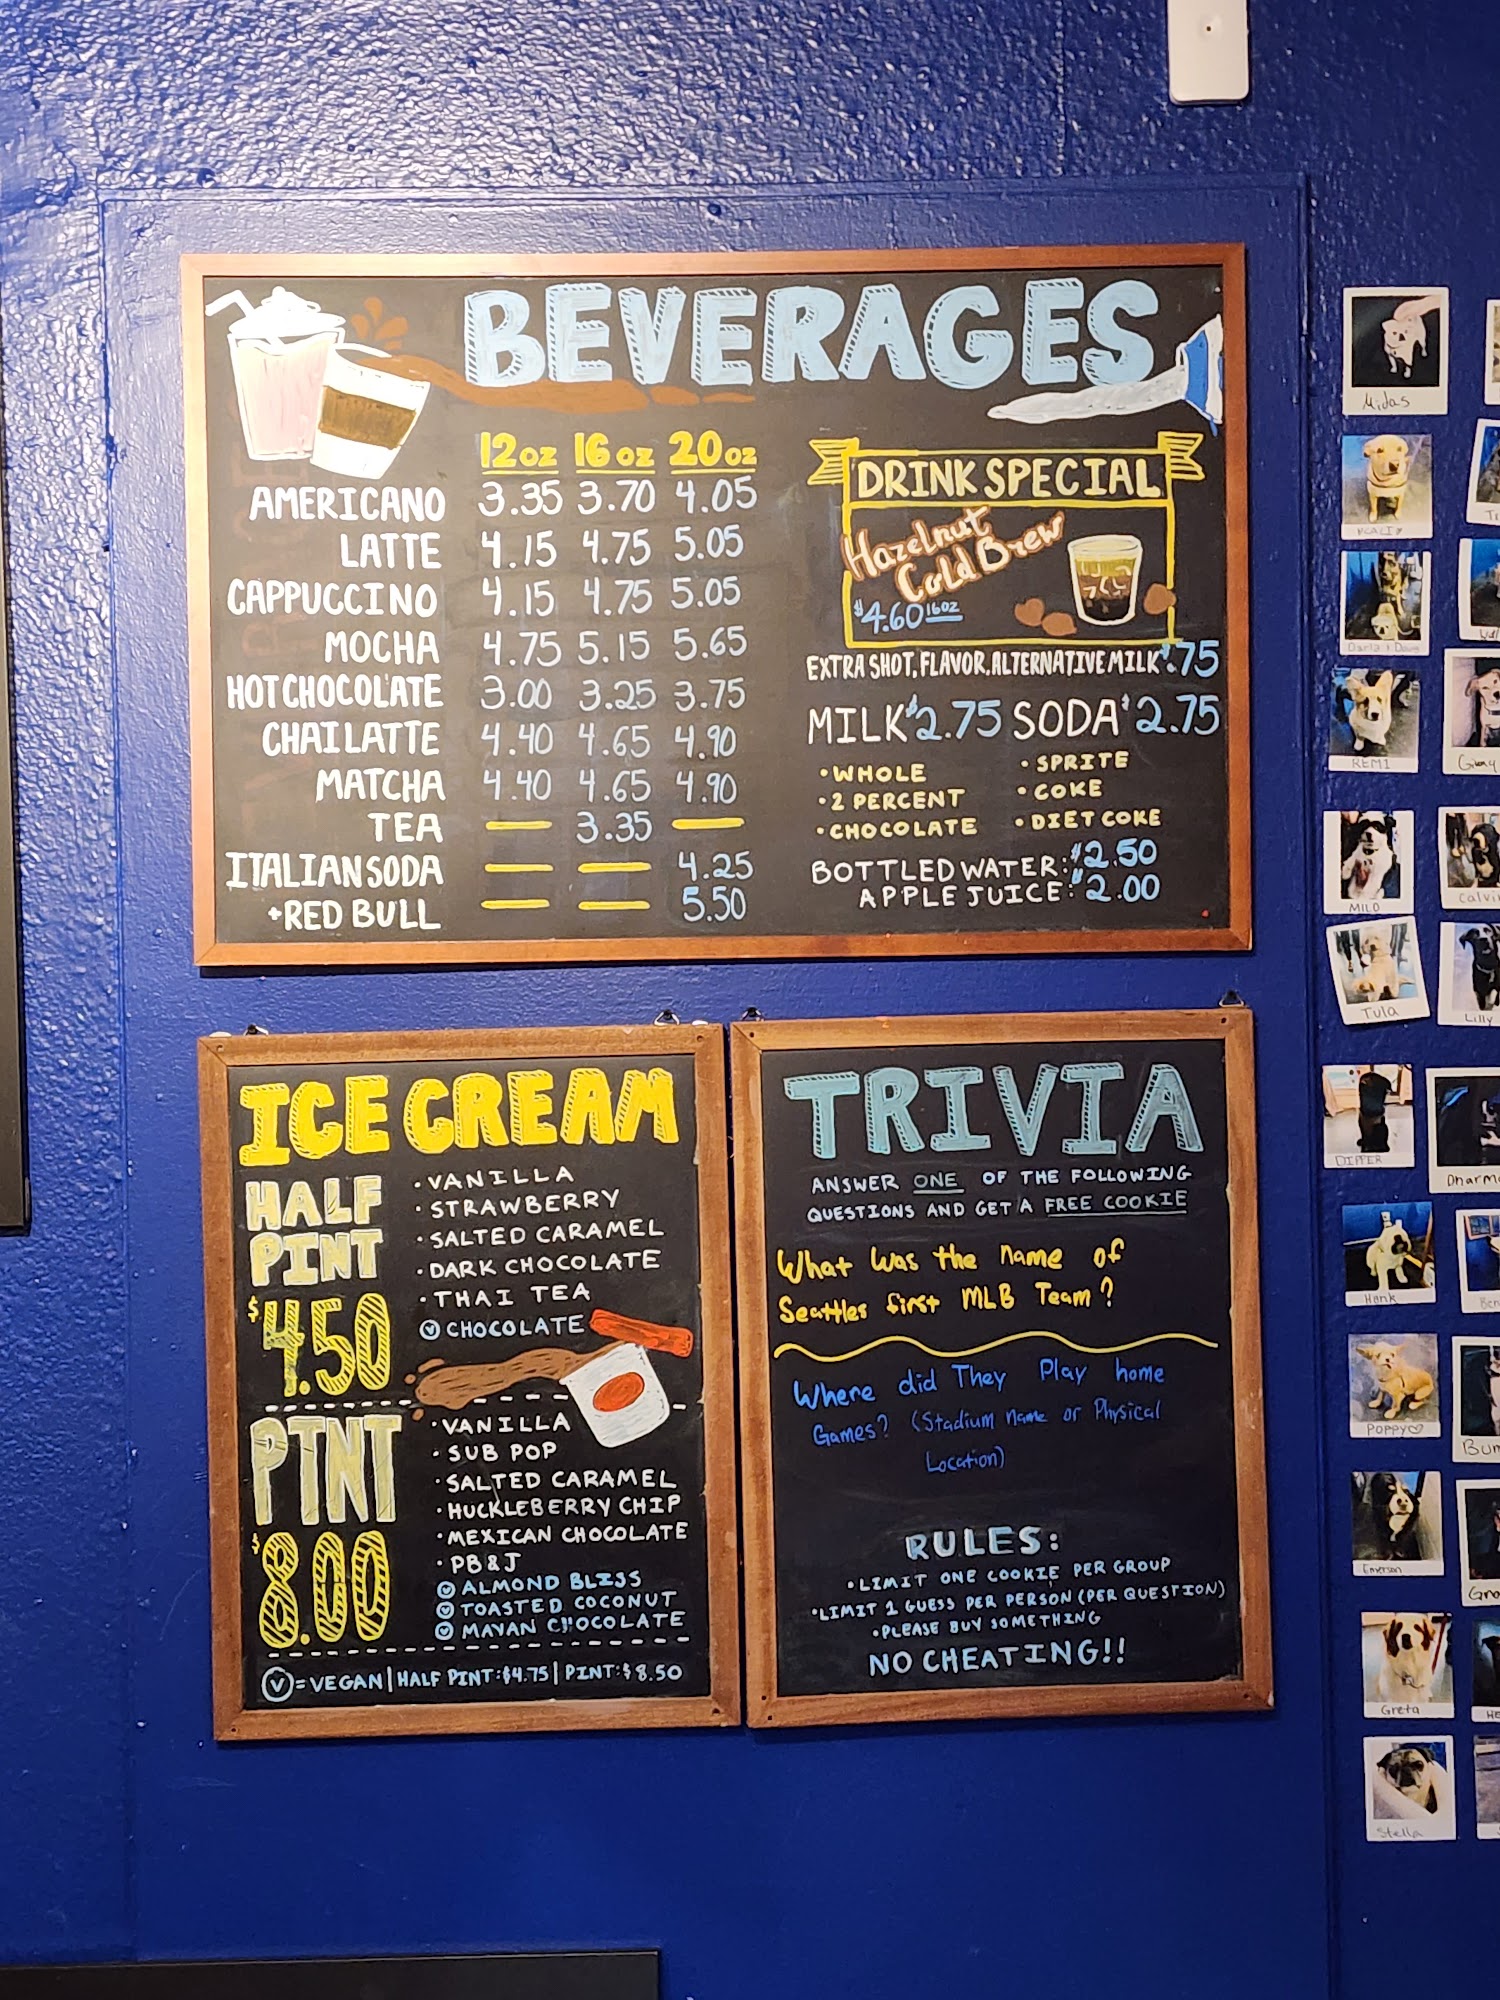 BEVERAGES
12oz 16oz 20oz
AMERICANO 3.35 3.70 4.05
LATTE 4.15 4.75 5.05
CAPPUCCINO 4.15 4.75 5.05
MOCHA 4.75 5.15 5.65
HOT CHOCOLATE 3.00 3.25 3.75
CHAI LATTE 4.40 4.65 4.90
MATCHA 4.40 4.65 4.90
TEA — 3.35 —
ITALIAN SODA — — 4.25
+RED BULL — — 5.50
DRINK SPECIAL
Hazelnut
Cold Brew
$4.60 16oz
EXTRA SHOT, FLAVOR, ALTERNATIVE MILK $.75
MILK $2.75 SODA $2.75
• WHOLE
• 2 PERCENT
• CHOCOLATE
• SPRITE
• COKE
• DIET COKE
BOTTLED WATER: $2.50
APPLE JUICE: $2.00
ICE CREAM
HALF
PINT
$4.50
• VANILLA
• STRAWBERRY
• SALTED CARAMEL
• DARK CHOCOLATE
• THAI TEA
Ⓥ CHOCOLATE
PINT
$8.00
• VANILLA
• SUB POP
• SALTED CARAMEL
• HUCKLEBERRY CHIP
• MEXICAN CHOCOLATE
• PB&J
Ⓥ ALMOND BLISS
Ⓥ TOASTED COCONUT
Ⓥ MAYAN CHOCOLATE
Ⓥ = VEGAN | HALF PINT: $4.75 | PINT: $8.50
TRIVIA
ANSWER ONE OF THE FOLLOWING
QUESTIONS AND GET A FREE COOKIE
What was the name of
Seattles first MLB Team?
Where did They Play home
Games? (Stadium name or Physical
Location)
RULES:
• LIMIT ONE COOKIE PER GROUP
• LIMIT 1 GUESS PER PERSON (PER QUESTION)
• PLEASE BUY SOMETHING
NO CHEATING!!
Midas
REMI
MILO
Tula
Lilly
DIPPER
Hank
POPPY♡
Emerson
Greta
Stella